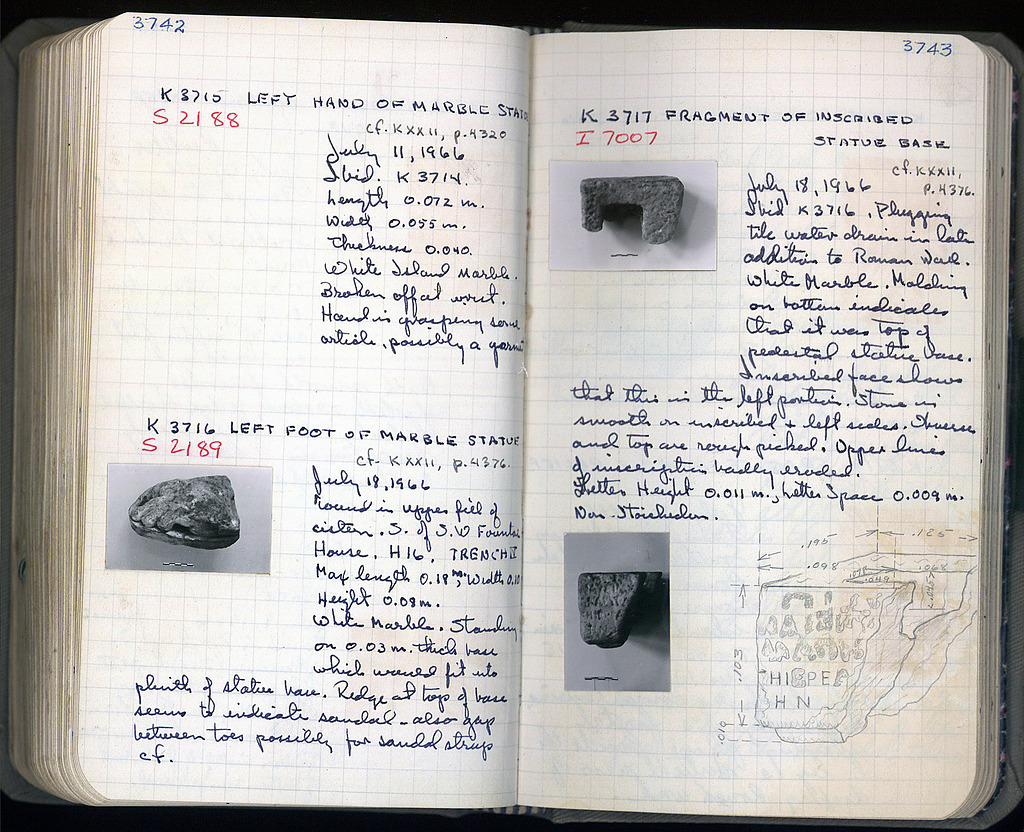 3742
K 3715 LEFT HAND OF MARBLE STAT
S 2188
cf. KXXII, p. 4320
July 11, 1966
Ibid. K 3714.
Length 0.072 m.
Width 0.055 m.
Thickness 0.040.
White Island Marble.
Broken off at wrist.
Hand is grasping some
article, possibly a garme
K 3716 LEFT FOOT OF MARBLE STATUE
S 2189
cf. KXXII, p. 4376.
July 18, 1966
Found in upper fill of
cistern. S. of S.W Fountai
House. H16, TRENCH II
Max length 0.18 m, Width 0.10
Height 0.08 m.
White Marble. Standing
on 0.03 m. thick base
which would fit into
plinth of statue base. Ridge at top of base
seems to indicate sandal - also gap
between toes possibly for sandal strap
cf.
3743
K 3717 FRAGMENT OF INSCRIBED
I 7007
STATUE BASE
cf. KXXII,
p. 4376.
July 18, 1966
Ibid K 3716, Plugging
tile water drain in late
addition to Roman Wall.
White Marble. Molding
on bottom indicates
that it was top of
pedestal statue base.
Inscribed face shows
that this is the left portion. Stone is
smooth on inscribed + left sides.
and top are rough picked. Upper lines
of inscription badly eroded.
Letter Height 0.011 m., Letter Space 0.009 m.
Non-Stoichedon.
.195
.125
.098
.068
.049
.103
HI PE
HN
.010